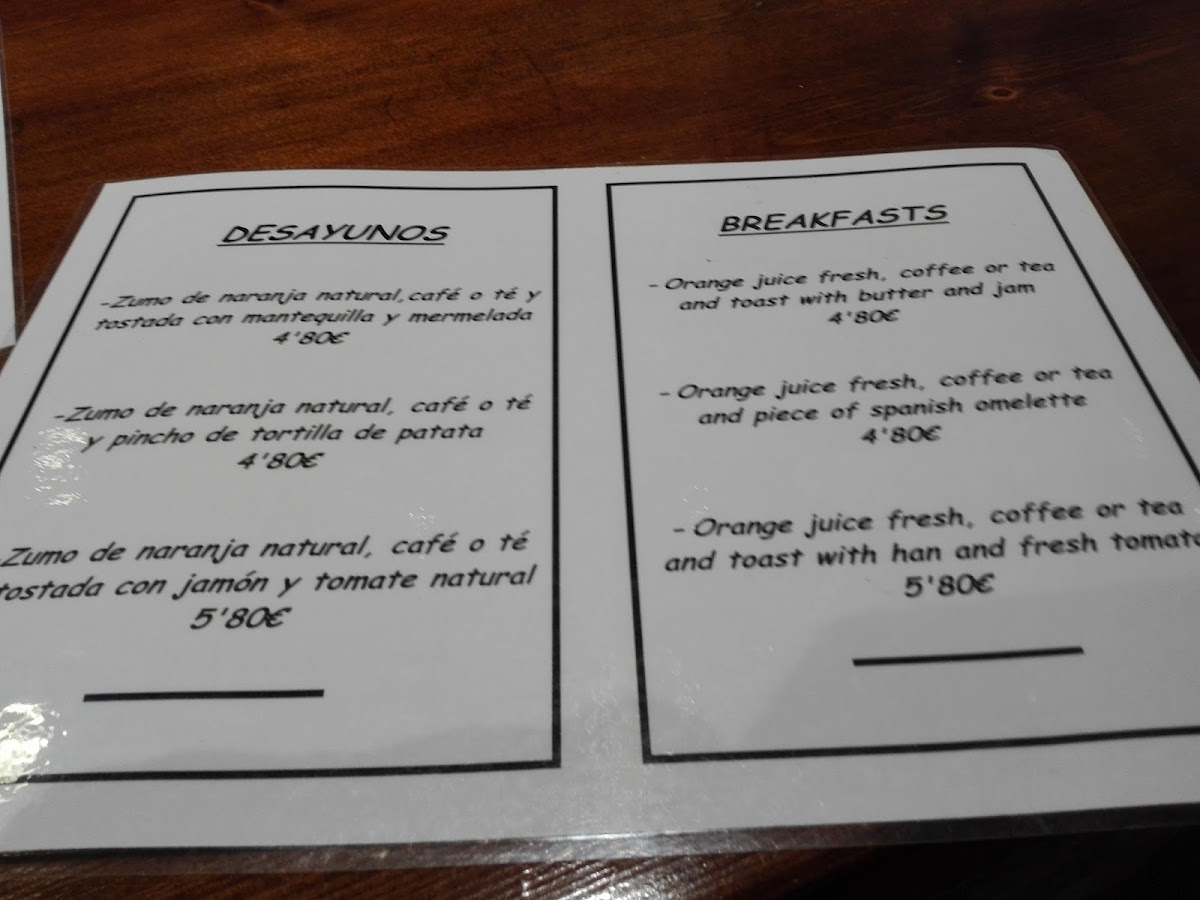 DESAYUNOS
-Zumo de naranja natural,café o té y
tostada con mantequilla y mermelada
4'80€
-Zumo de naranja natural, café o té
y pincho de tortilla de patata
4'80€
Zumo de naranja natural, café o té
tostada con jamón y tomate natural
5'80€
BREAKFASTS
- Orange juice fresh, coffee or tea
and toast with butter and jam
4'80€
- Orange juice fresh, coffee or tea
and piece of spanish omelette
4'80€
- Orange juice fresh, coffee or tea
and toast with han and fresh tomato
5'80€